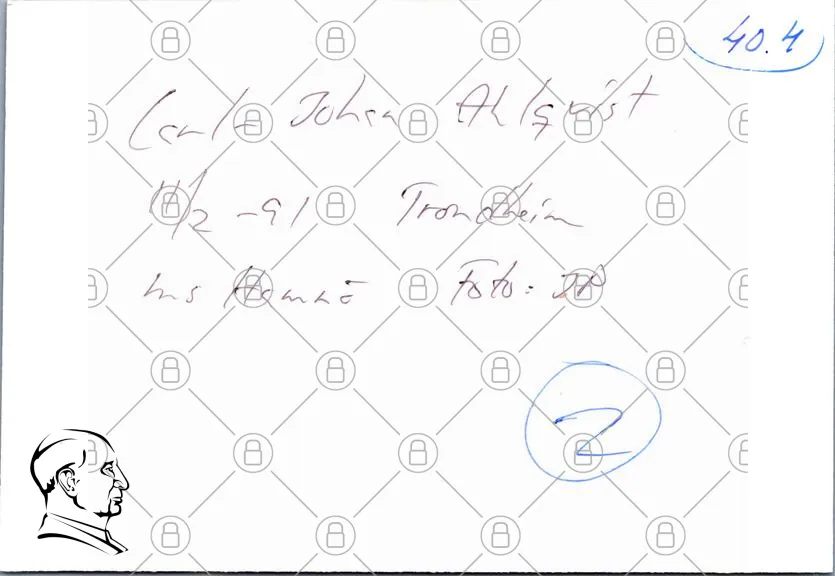 40.4
Carl Johan Ahlqvist
11/2 -91 Trondheim
hos Foto: JP
2